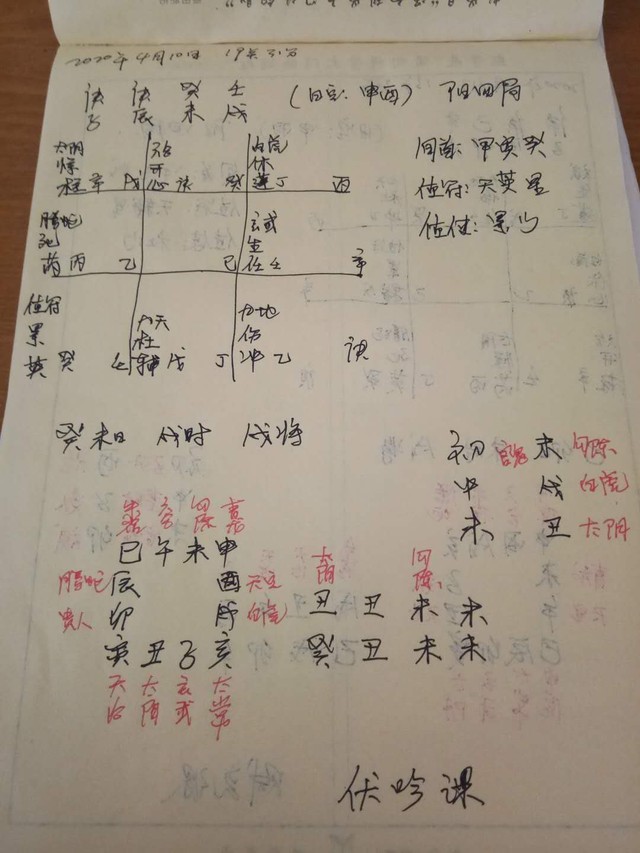 2020年4月10日 19点31分
庚 庚 癸 壬
子 辰 未 戌 (日空:申酉) 阳四局
旬首:甲寅癸
值符:天英星
值使:景门
太阴 六合 白虎
惊 开 休
辛 戊 心 庚 癸 蓬 丁 丙
腾蛇 玄武
死 生
芮 丙 乙 己 任 壬 辛
值符 九天 九地
景 杜 伤
英 癸 壬 辅 戊 丁 冲 乙 庚
癸未日 戌时 戌将
初 未 勾陈
中 戌 白虎
末 丑 太阴
朱雀 六合 勾陈 青龙
巳 午 未 申
腾蛇 辰 酉 天空
贵人 卯 戌 白虎
寅 丑 子 亥
天后 太阴 玄武 太常
太阴 勾陈
丑 丑 未 未
癸 丑 未 未
伏吟课